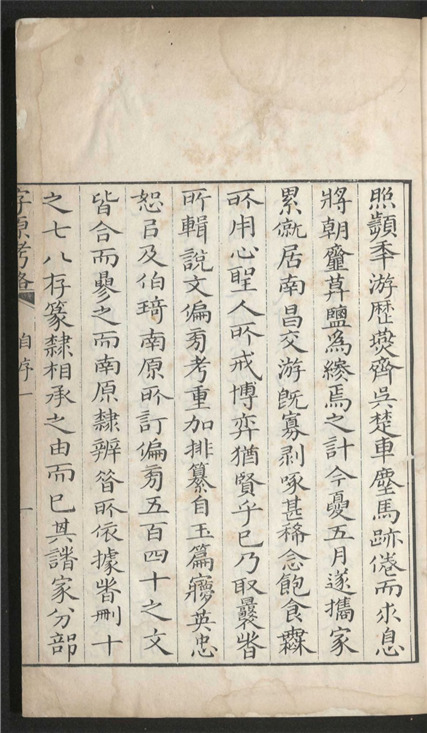 照頻秊游歷燕齊吳楚車塵馬跡倦而求息
將朝齏莫鹽爲終焉之計今夏五月遂攜家
累僦居南昌交游旣寡剥啄甚稀念飽食無
所用心聖人所戒博弈猶賢乎已乃取曩昔
所輯說文偏旁考重加排纂自玉篇夢英忠
恕㠯及伯琦南原所訂偏旁五百四十之文
皆合而參之而南原隸辨昔所依據者刪十
之七八存篆隸相承之由而已其諸家分部
字原考略 自序 一